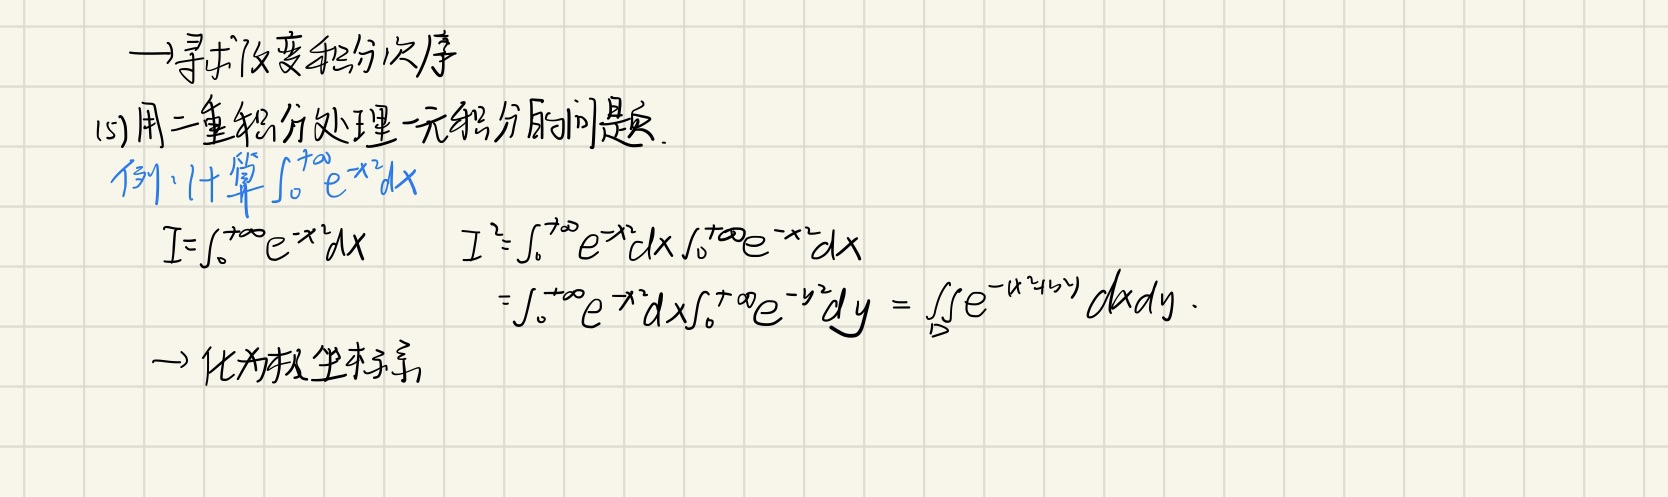 →寻求改变积分次序
(5)用二重积分处理一元积分的问题.
例:计算∫₀^{+∞} e^{-x²}dx
I=∫₀^{+∞} e^{-x²}dx I²=∫₀^{+∞} e^{-x²}dx∫₀^{+∞} e^{-x²}dx
=∫₀^{+∞} e^{-x²}dx∫₀^{+∞} e^{-y²}dy = ∬_D e^{-(x²+y²)} dxdy.
→化为极坐标系